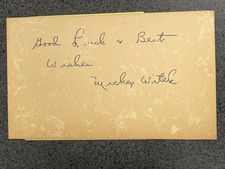 Good Luck & Best
Wishes
Mickey Witek